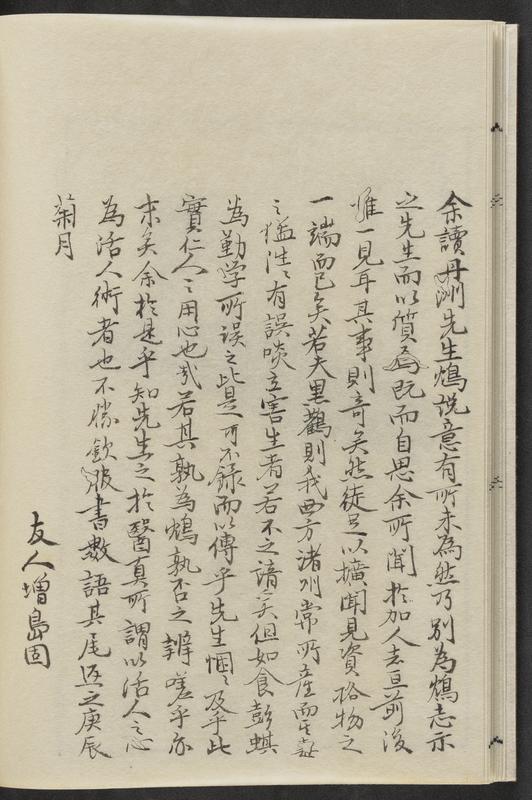 余讀丹洲先生鴆説意有所未為然乃別為鴆志示
之先生而以質焉既而自思余所聞於加人去亘前後
惟一見耳其事則奇矣然徒足以擴聞見資格物之
一端而已矣若夫黒鸛則我西方諸州常所産而其
之猛往々有誤啖立害生者若不之諳矣但如食彭蜞
為勤学所誤之此是可不録而以傳乎先生悃々及乎此
實仁人之用心也哉若其孰為鴆孰否之辨嗟乎亦
末矣余於是乎知先生之於醫真所謂以活人之心
為活人術者也不勝欽服書數語其尾返之庚辰
菊月
友人増島固